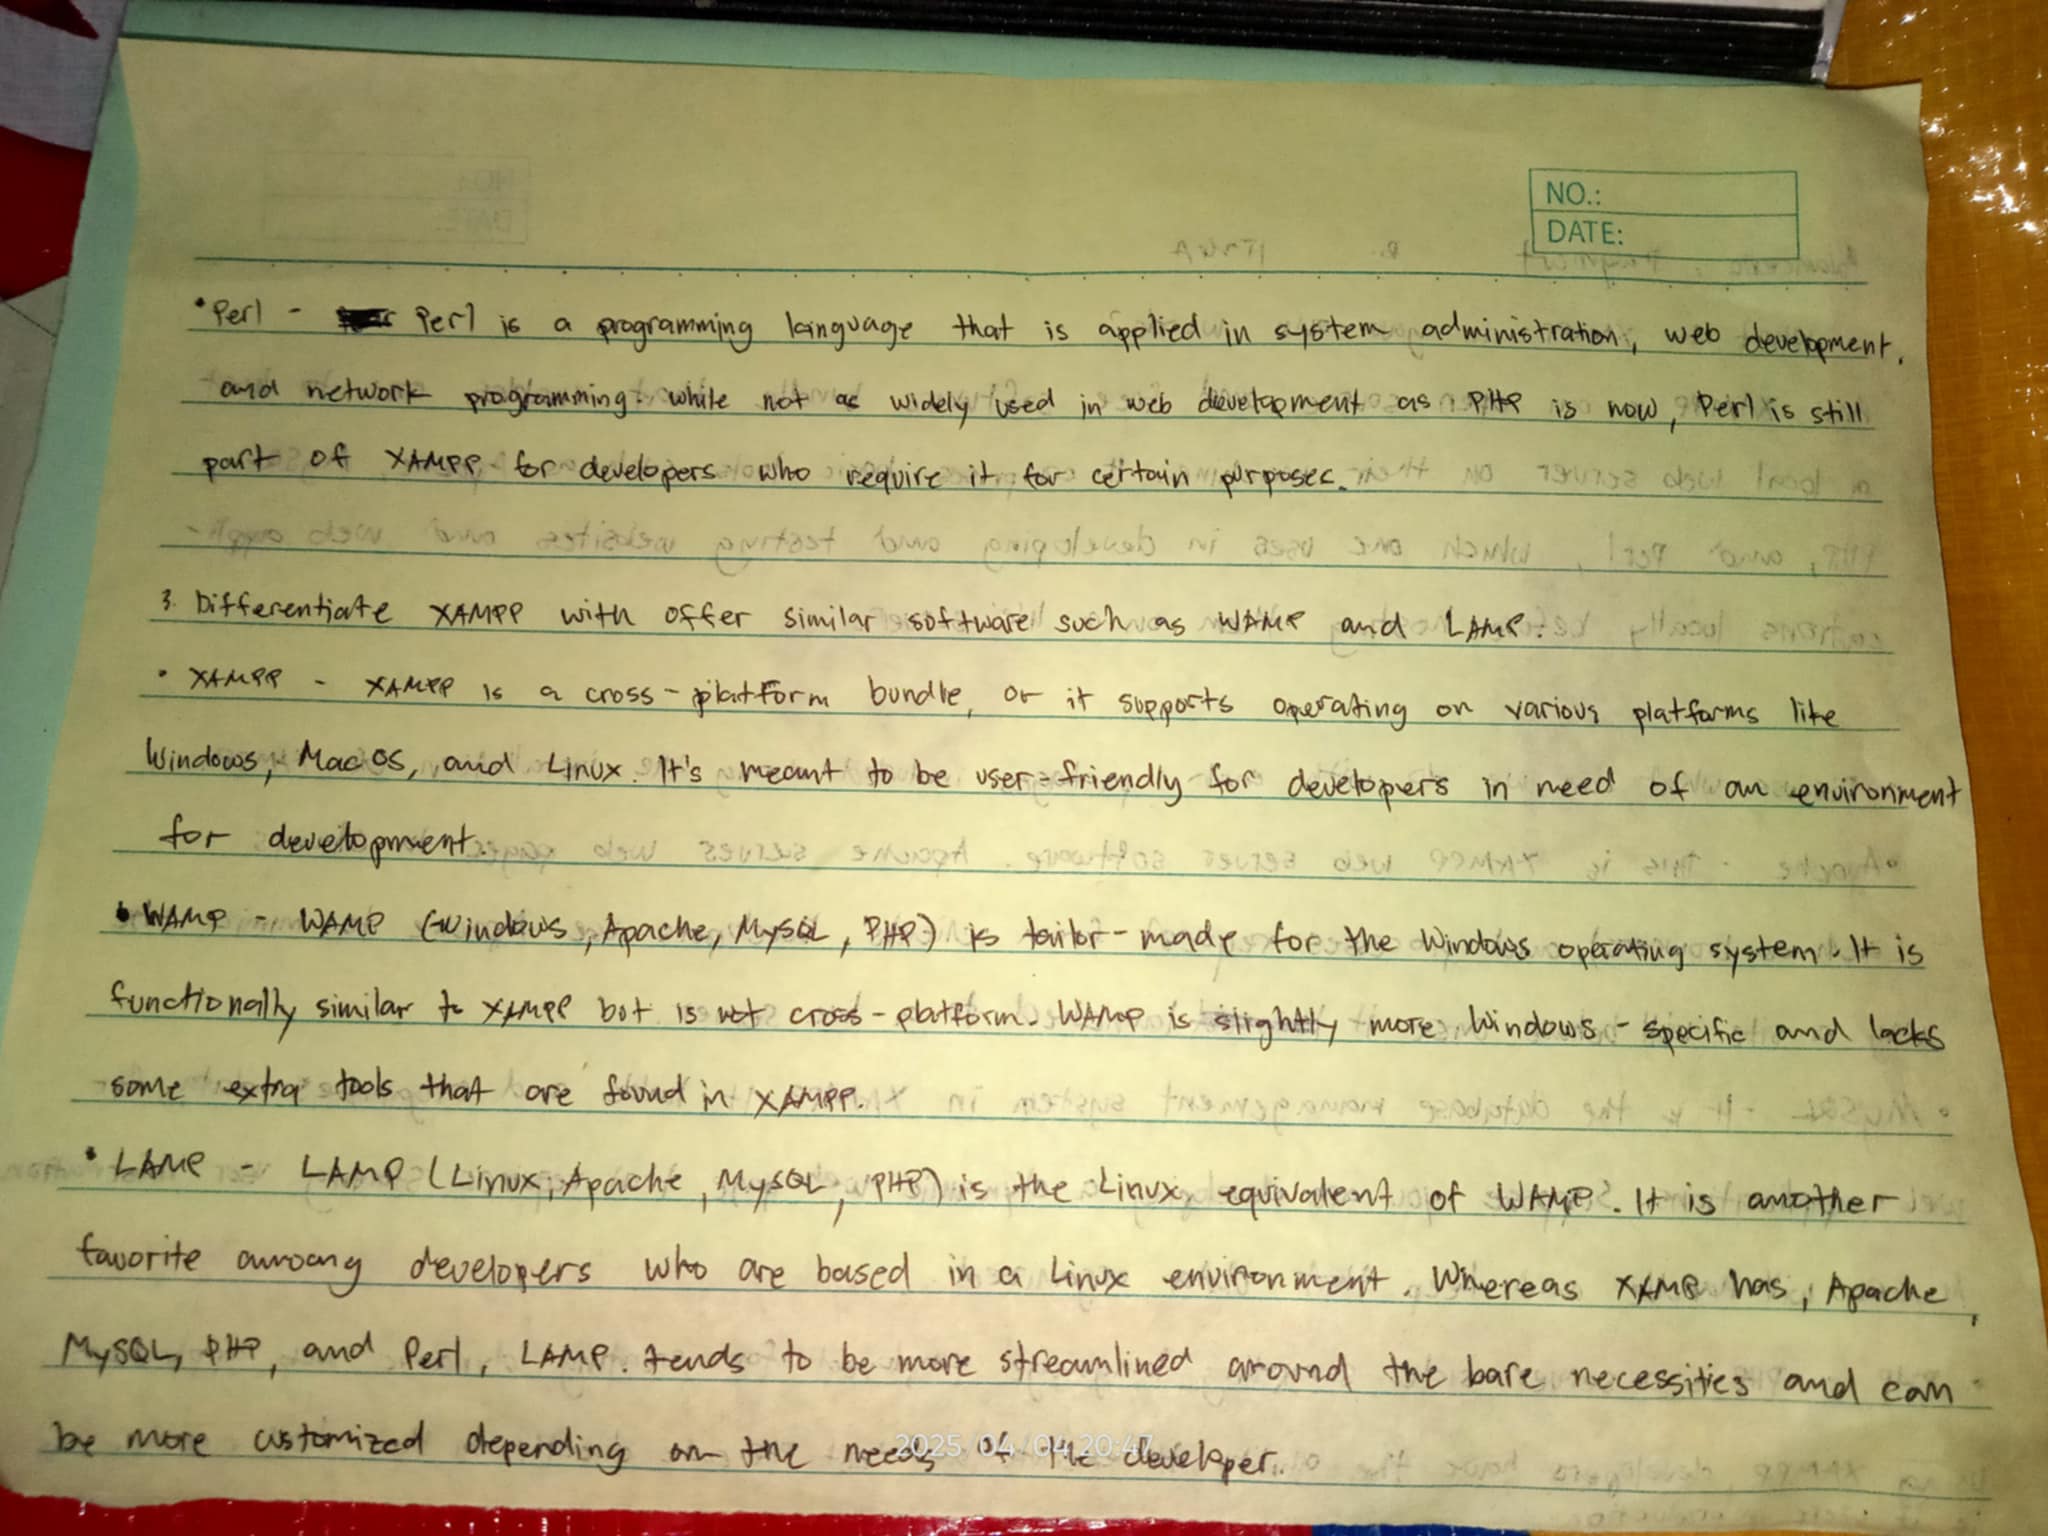 NO.:
DATE:
• Perl - Perl is a programming language that is applied in system administration, web development,
and network programming. While not as widely used in web development as PHP is now, Perl is still
part of XAMPP for developers who require it for certain purposes.
3. Differentiate XAMPP with offer similar software such as WAMP and LAMP.
• XAMPP - XAMPP is a cross-platform bundle, or it supports operating on various platforms like
Windows, Mac OS, and Linux. It's meant to be user-friendly for developers in need of an environment
for development.
• WAMP - WAMP (Windows, Apache, MySQL, PHP) is tailor-made for the Windows operating system. It is
functionally similar to XAMPP but is not cross-platform. WAMP is slightly more Windows-specific and lacks
some extra tools that are found in XAMPP.
• LAMP - LAMP (Linux, Apache, MySQL, PHP) is the Linux equivalent of WAMP. It is another
favorite amoung developers who are based in a Linux environment. Whereas XAMP has, Apache,
MySQL, PHP, and Perl, LAMP. tends to be more streamlined around the bare necessities and can
be more customized depending on the needs of the developer.
2025/04/04 20:47